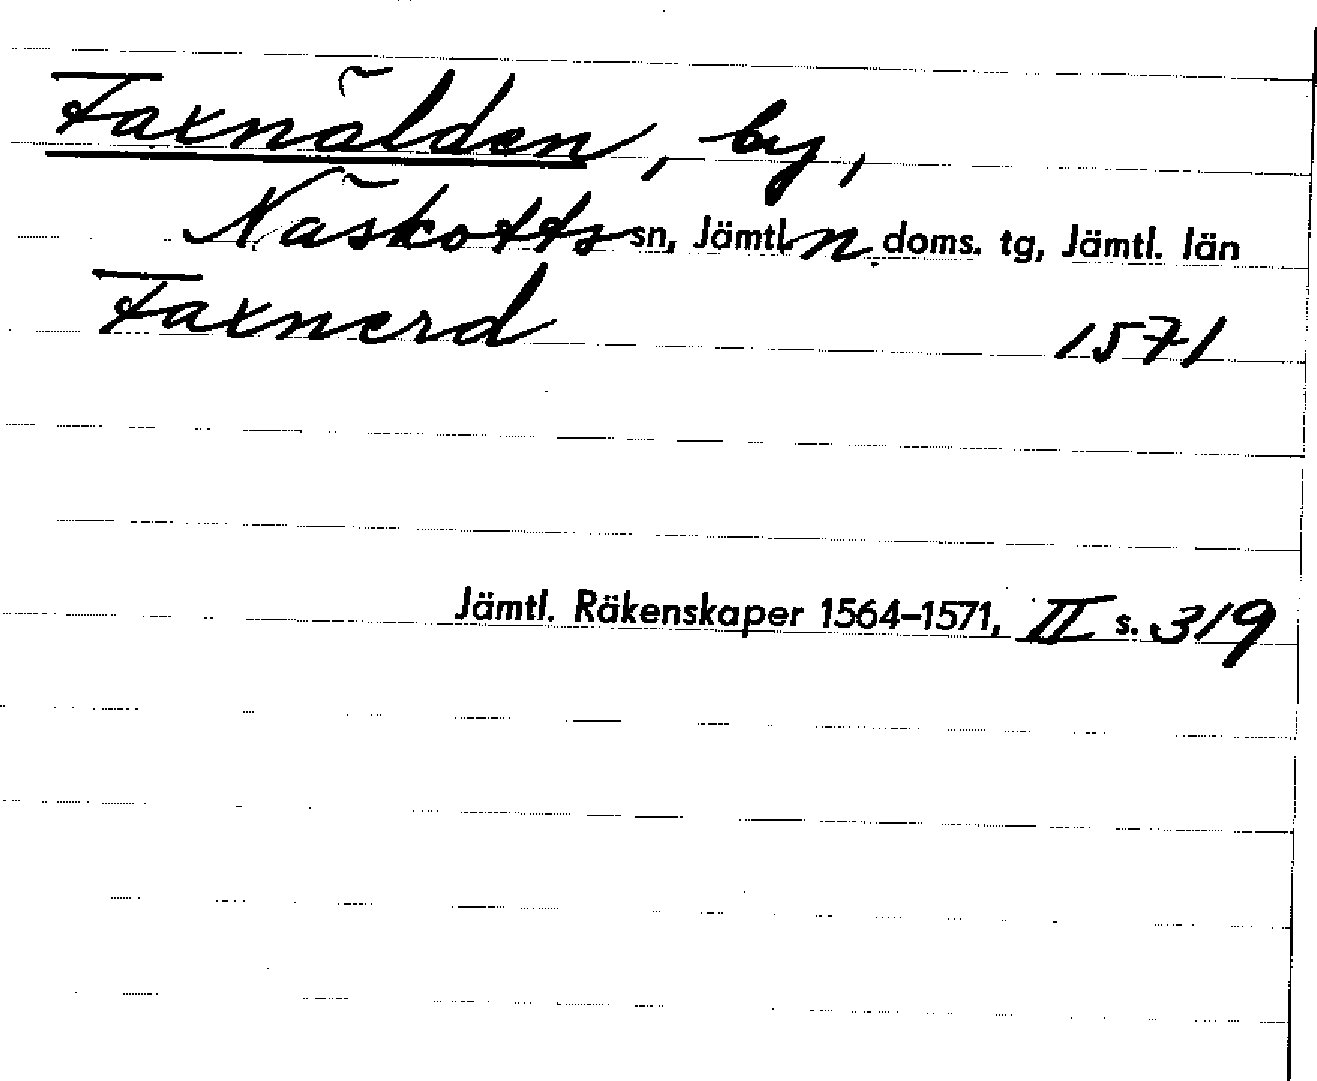 Faxnälden, by,
Näskotts sn, Jämtl. n. doms. tg, Jämtl. län
Faxnerd 1571
Jämtl. Räkenskaper 1564–1571, II s. 319